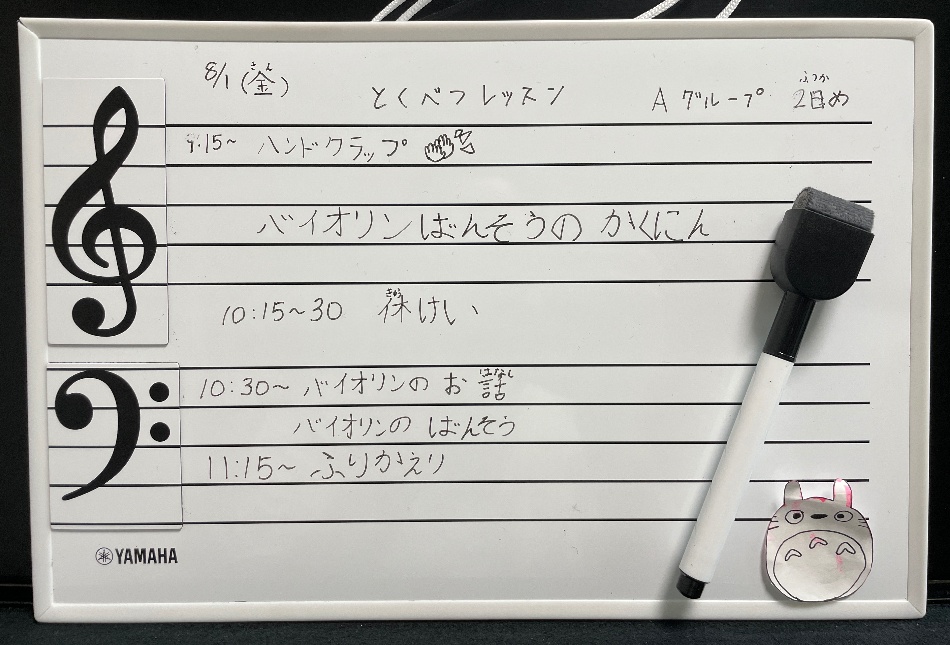 8/1(金) とくべつレッスン Aグループ 2日め
9:15~ ハンドクラップ
バイオリンばんそうの かくにん
10:15~30 休けい
10:30~ バイオリンの お話
バイオリンの ばんそう
11:15~ ふりかえり
YAMAHA